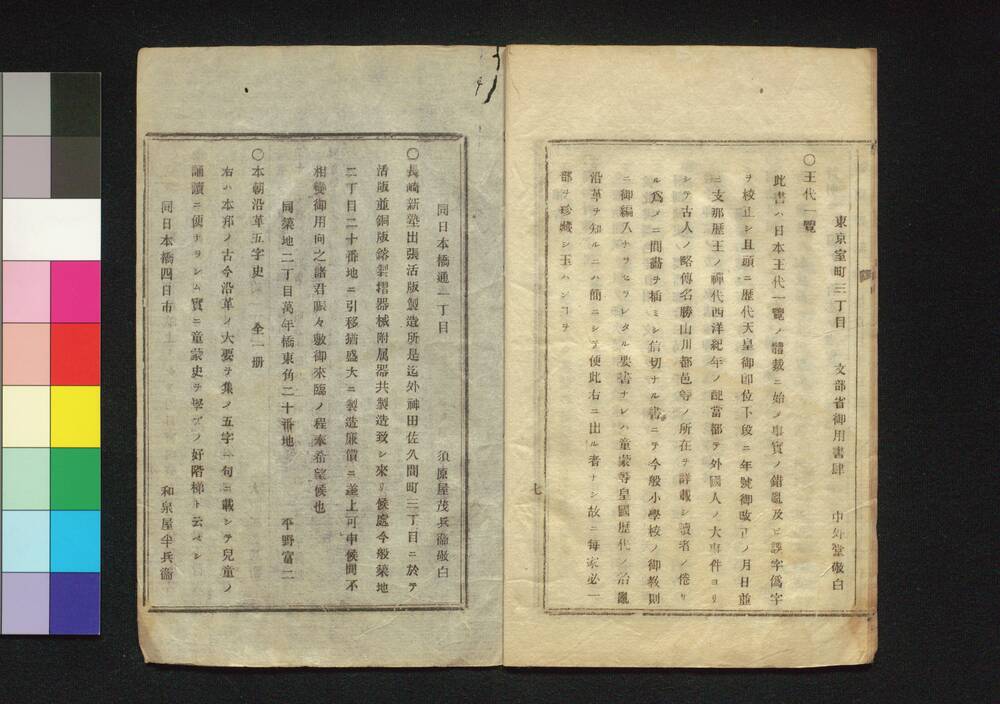 東京室町三丁目 文部省御用書肆 中外堂敬白
〇王代一覽
此書ハ日本王代一覽ノ體裁ニ始メ事實ノ錯亂及ヒ誤字僞字
ヲ校正シ且頭ニ歴代天皇御即位下段ニ年號御改正ノ月日並
ニ支那歴王ノ禪代西洋紀年ノ配當都テ外國人ノ大事件ヨリ
シテ古人ノ略傳名勝山川都邑等ノ所在ヲ詳載シ讀者ノ倦
ル爲メニ間畵ヲ插ミシ信切ナル書ニテ今般小學校ノ御教則
ニ御編入ナサセラレタル要書ナレハ童蒙等皇國歴代ノ治亂
沿革ヲ知ルニハ簡ニシテ便此右ニ出ル者ナシ故ニ毎家必一
部ヲ珍藏シ玉ハンコヲ
七
同日本橋通一丁目 須原屋茂兵衞敬白
〇長崎新塾出張活版製造所是迄外神田佐久間町三丁目ニ於テ
活版並銅版鎔製摺器械附屬器共製造致シ來リ候處今般築地
二丁目二十番地ニ引移猶盛大ニ製造廉價ニ差上可申候間不
相變御用向之諸君賑々敷御來臨ノ程奉希望候也
同築地二丁目萬年橋東角二十番地 平野富二
〇本朝沿革五字史 全一册
右ハ本邦ノ古今沿革ノ大要ヲ集メ五字一句ニ載シテ兒童ノ
誦讀ニ便ナラシム實ニ童蒙史ヲ學ブノ好階梯ト云ベシ
同日本橋四日市 和泉屋半兵衞